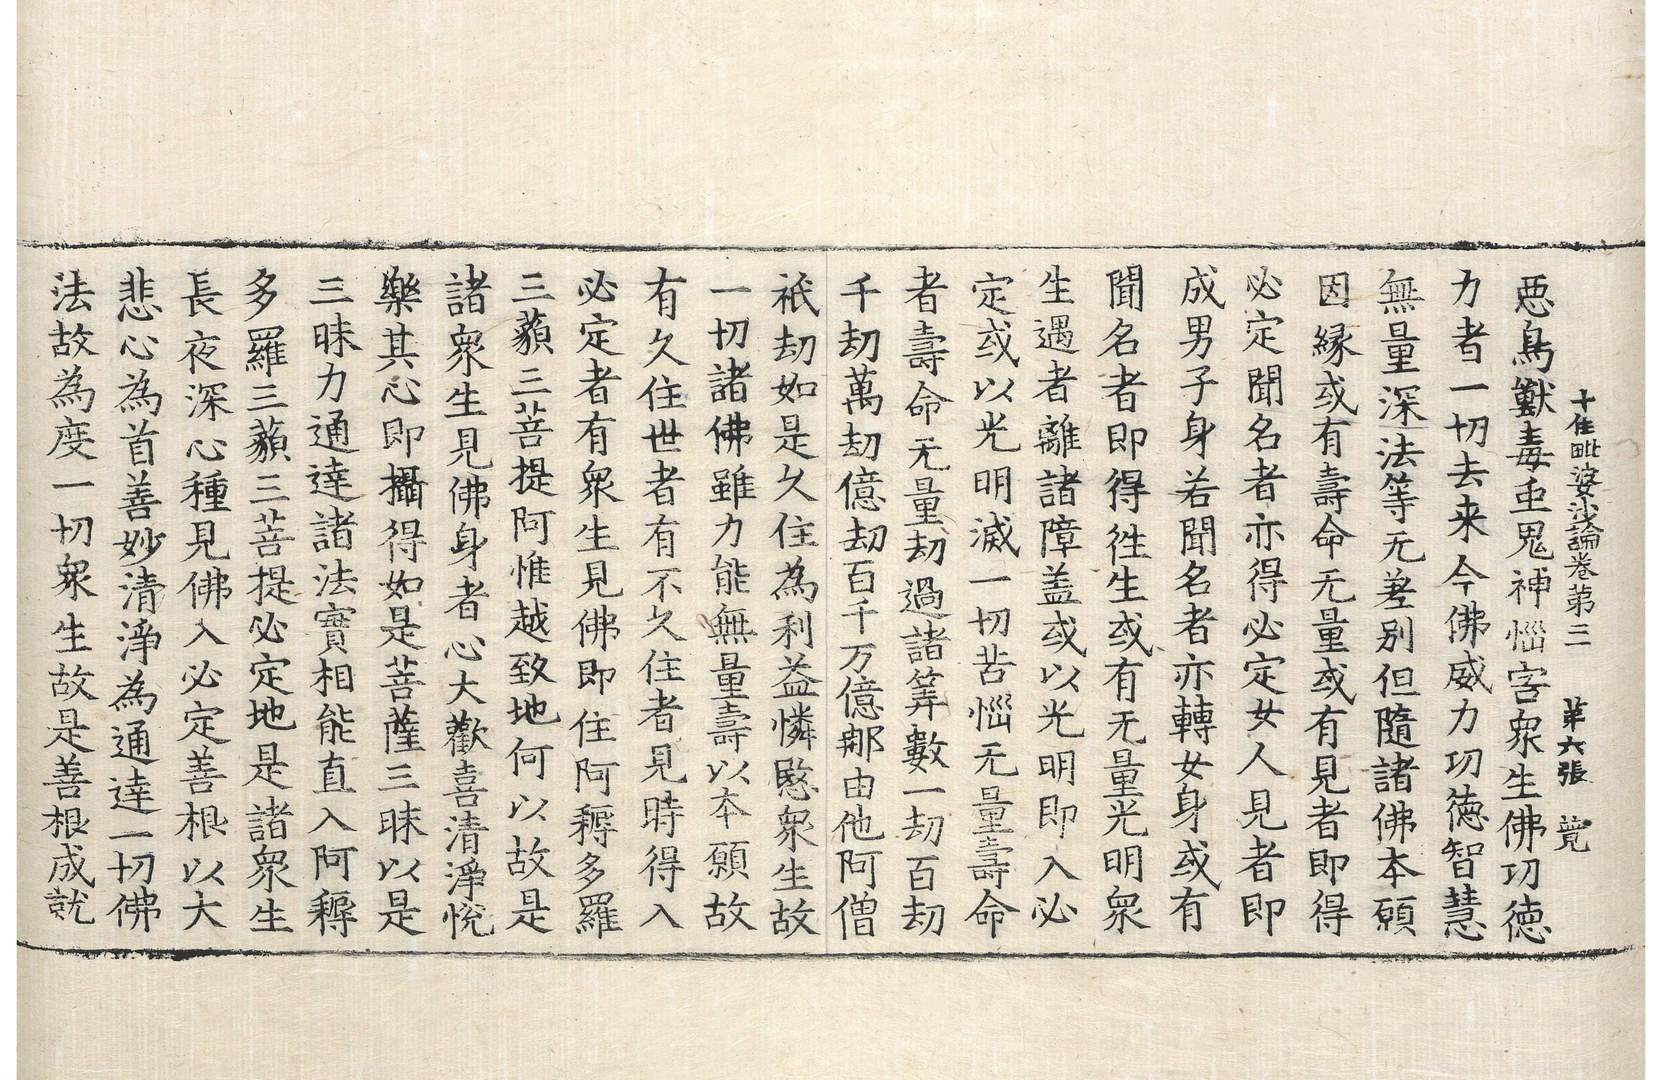 十住毗婆沙論卷第三 第六張 覽
惡鳥獸毒䖝鬼神惱害衆生佛功德
力者一切去来今佛威力功德智慧
無量深法等无差別但隨諸佛本願
因縁或有壽命无量或有見者即得
必定聞名者亦得必定女人見者即
成男子身若聞名者亦轉女身或有
聞名者即得徃生或有无量光明衆
生遇者離諸障盖或以光明即入必
定或以光明滅一切苦惱无量壽命
者壽命无量劫過諸筭數一劫百劫
千劫萬劫億劫百千万億那由他阿僧
祇劫如是久住為利益憐愍衆生故
一切諸佛雖力能無量壽以本願故
有久住世者有不久住者見時得入
必定者有衆生見佛即住阿耨多羅
三藐三菩提阿惟越致地何以故是
諸衆生見佛身者心大歡喜清淨悅
樂其心即攝得如是菩薩三昧以是
三昧力通達諸法實相能直入阿耨
多羅三藐三菩提必定地是諸衆生
長夜深心種見佛入必定善根以大
悲心為首善妙清淨為通達一切佛
法故為度一切衆生故是善根成就